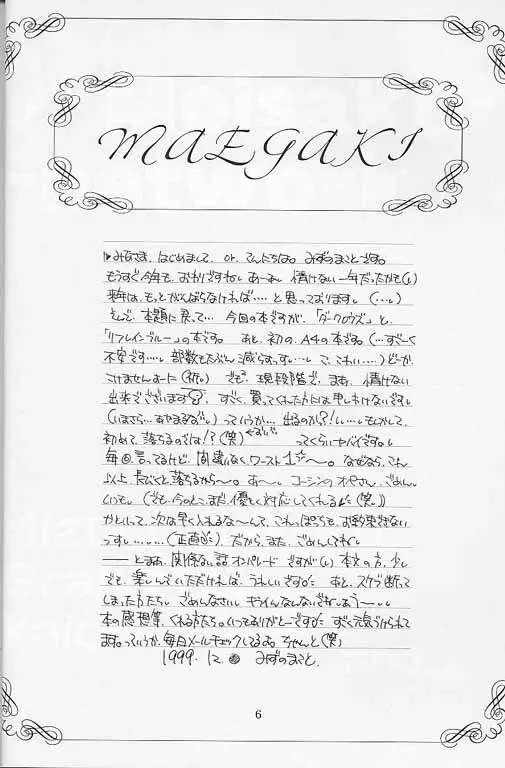 MAEGAKI
みなさま、はじめまして、or、こんにちは。みずのまことです。
もうすぐ今年も、おわりですねい。あーあー、情けない一年だったかも(し
来年は、もっとがんばらなければ‥‥と思っております。(…し)
そんで、本題に戻って…今回の本ですが、「ダークロウズ」と、
「リフレインブルー」の本です。あと、初の、A4の本です。(…すごーく
不安です…。部数もたぶん減らすっす…し こ、こわい…)どーか、
こけませんよーに(祈)。でも、現段階で、まず、情けない
出来でございます?。すごく、買ってくれた方には申しわけないです。
(いまさら…あやまるな)っていうか…出るのか?!い…もしかして、
初めて、落ちるのでは!?(笑) ってくらいヤバイです。
毎回、言ってるけど、間違いなく、ワースト1〜。なぜなら、これ
以上、長びくと落ちるから〜。あーし、コーシンのオペさん、ごめんし
いつもし(でも、今のとこ、まだ、優しく対応してくれる(笑))
かといって、次は早く入れるなーんて、これっぽっちも、お約束できない
っすし……し(正直)だから、また、ごめんしてねし
――とまあ、関係ない話オンパレードですが(し)本文の方、少し
でも、楽しんでいただければ、うれしいです。あと、スケブ断って
しまった方たちし ごめんなさいし
本の感想等、くれる方たち。いつもありがとーです。すごく元気づけられて
ます。っていうか、毎日メールチェックしてるよ。ちゃんと(笑)
1999.12. みずのまこと。
6